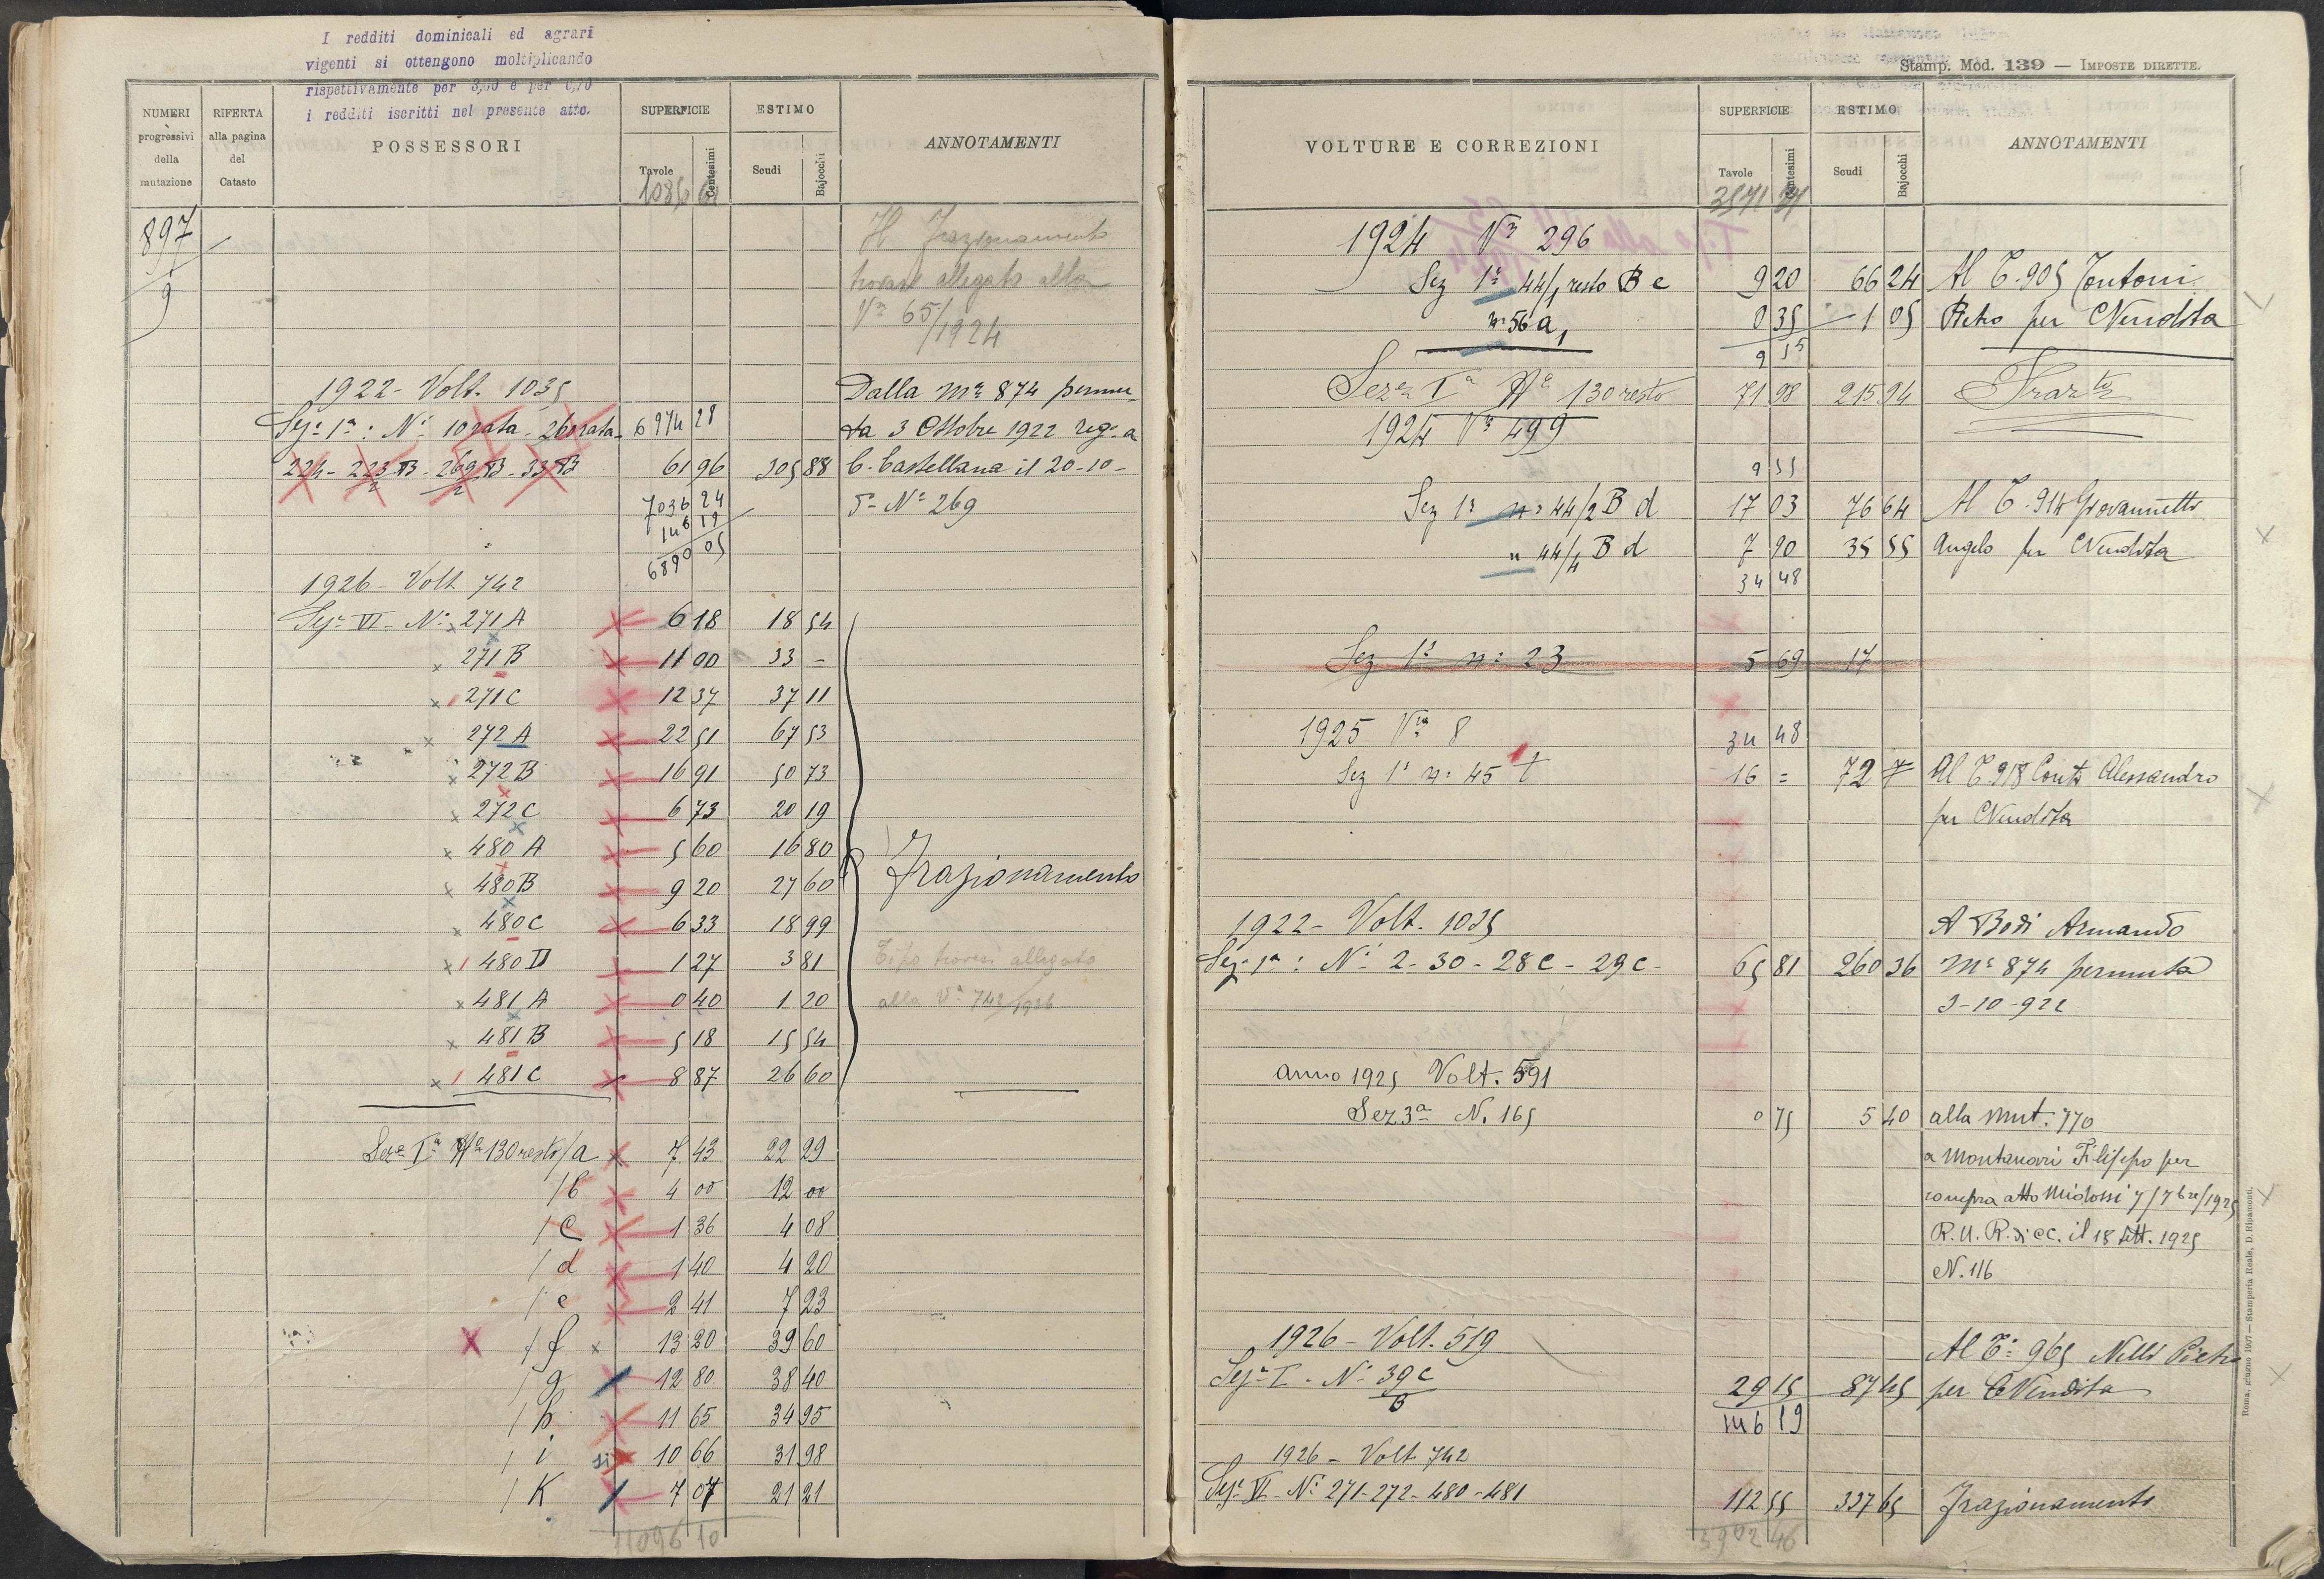 I redditi dominicali ed agrari
vigenti si ottengono moltiplicando
rispettivamente per 3,60 e per 0,70
i redditi iscritti nel presente atto.
NUMERI progressivi della mutazione
RIFERTA alla pagina del Catasto
POSSESSORI
SUPERFICIE Tavole Centesimi
ESTIMO Scudi Bajocchi
ANNOTAMENTI
897
9
Il Frazionamento
trovasi allegato alla
Va 65/1924
1922 - Volt. 1035 Dalla Ma 874 permu-
Sez. 1a: N. 10 rata - 260 rata 6974 28 ta 3 Ottobre 1922 reg. a
224 - 223 B/2 - 269 B/2 - 33 B 61 96 305 88 C. Castellana il 20-10-
7036 24 N. 269
146 19
6890 05
1926 - Volt 742
Sez. VI - N. 271 A 6 18 18 54
271 B 11 00 33 -
271 C 12 37 37 11
272 A 22 51 67 53
272 B 16 91 50 73
272 C 6 73 20 19
480 A 5 60 16 80
480 B 9 20 27 60 Frazionamento
480 C 6 33 18 99
480 D 1 27 3 81 Tipo trovasi allegato
481 A 0 40 1 20 alla Va 742/1926
481 B 5 18 15 54
481 C 8 87 26 60
Seze Ia No 130 resto/a 7 43 22 29
/b 4 00 12 00
/c 1 36 4 08
/d 1 40 4 20
/e 2 41 7 23
/f 13 20 39 60
/g 12 80 38 40
/h 11 65 34 95
/i si 10 66 31 98
/K 7 07 21 21
11096 10
Stamp. Mod. 139 — IMPOSTE DIRETTE.
VOLTURE E CORREZIONI
SUPERFICIE Tavole Centesimi
ESTIMO Scudi Bajocchi
ANNOTAMENTI
1924 Va 296
Sez 1a 44/1 resto B c 9 20 66 24 Al T. 905 Tontoni
n. 56 a 0 35 1 05 Pietro per Vendita
9 55
Seze Ia No 130 resto 71 98 215 94 Frazto
1924 Va 499
9 55
Sez 1a n. 44/2 B d 17 03 76 64 Al T. 914 Giovannetti
" 44/4 B d 7 90 35 55 Angelo per Vendita
34 48
Sez 1a n. 23 5 69 17
1925 Va 8 34 48
Sez 1a n. 45 t 16 = 72 Al T. 918 Conti Alessandro
per Vendita
1922 - Volt. 1035 A Bodi Armando
Sez. 1a: N. 2 - 30 - 28 C - 29 C - 65 81 260 36 Ma 874 permuta
3-10-922
anno 1925 Volt. 591
Sez 3a N. 165 0 75 5 40 alla mut. 770
a Montanari Filippo per
compra atto Midossi 7/7bre/1925
R. U. R. di CC. il 18 Sett. 1925
N. 116
1926 - Volt. 519 Al T. 965 Nelli Pietro
Sez. I - N. 39 C/B 29 15 87 45 per Vendita
146 19
1926 - Volt 742
Sez. VI - N. 271 - 272 - 480 - 481 112 55 337 65 Frazionamento
3902 46
Roma, giugno 1907 — Stamperia Reale, D. Ripamonti.